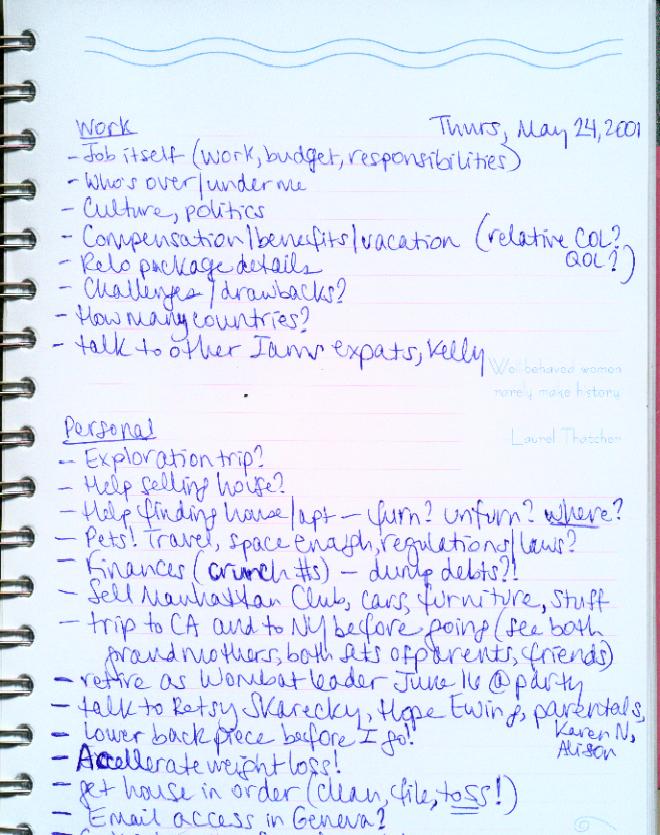 Work
Thurs, May 24, 2001
- Job itself (work, budget, responsibilities)
- Who's over/under me
- Culture, politics
- Compensation/benefits/vacation (relative COL?
QOL?)
- Relo package details
- Challenges/drawbacks?
- How many countries?
- talk to other Iams expats, Kelly
Well-behaved women
rarely make history
Laurel Thatcher
Personal
- Exploration trip?
- Help selling house?
- Help finding house/apt - furn? unfurn? where?
- Pets! Travel, space enough, regulations/laws?
- Finances (crunch #s) - dump debts?!
- Sell Manhattan Club, cars, furniture, stuff
- trip to CA and to NY before going (see both
grandmothers, both sets of parents, friends)
- retire as Wombat leader June 16 @ party
- talk to Betsy Skarecky, Hope Ewing, parentals,
Karen N,
Alison
- lower back piece before I go!
- Accellerate weight loss!
- get house in order (clean, file, toss!)
- Email access in Geneva?